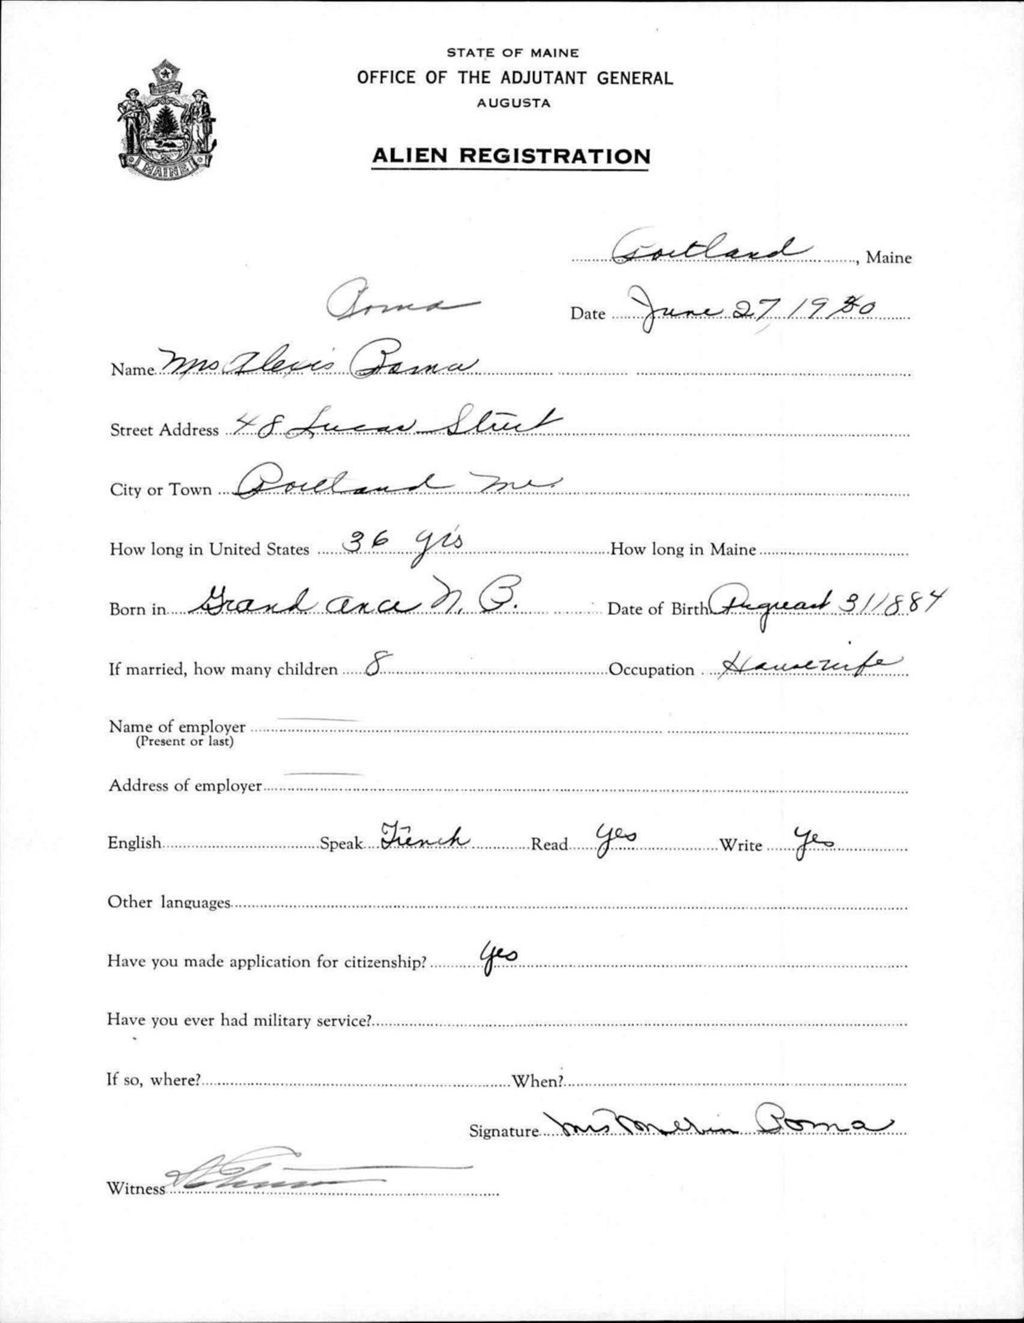 STATE OF MAINE
OFFICE OF THE ADJUTANT GENERAL
AUGUSTA
ALIEN REGISTRATION
MAINE
Portland, Maine
Poma
Date June 27, 1940
Name Mrs Alexis Poma
Street Address 48 Lucas Street
City or Town Portland Me.
How long in United States 36 yrs How long in Maine
Born in Grand ance N. B. Date of Birth 31/1884
If married, how many children 8 Occupation Housewife
Name of employer
(Present or last)
Address of employer
English Speak French Read Yes Write Yes
Other languages
Have you made application for citizenship? Yes
Have you ever had military service?
If so, where? When?
Signature Mrs Poma
Witness